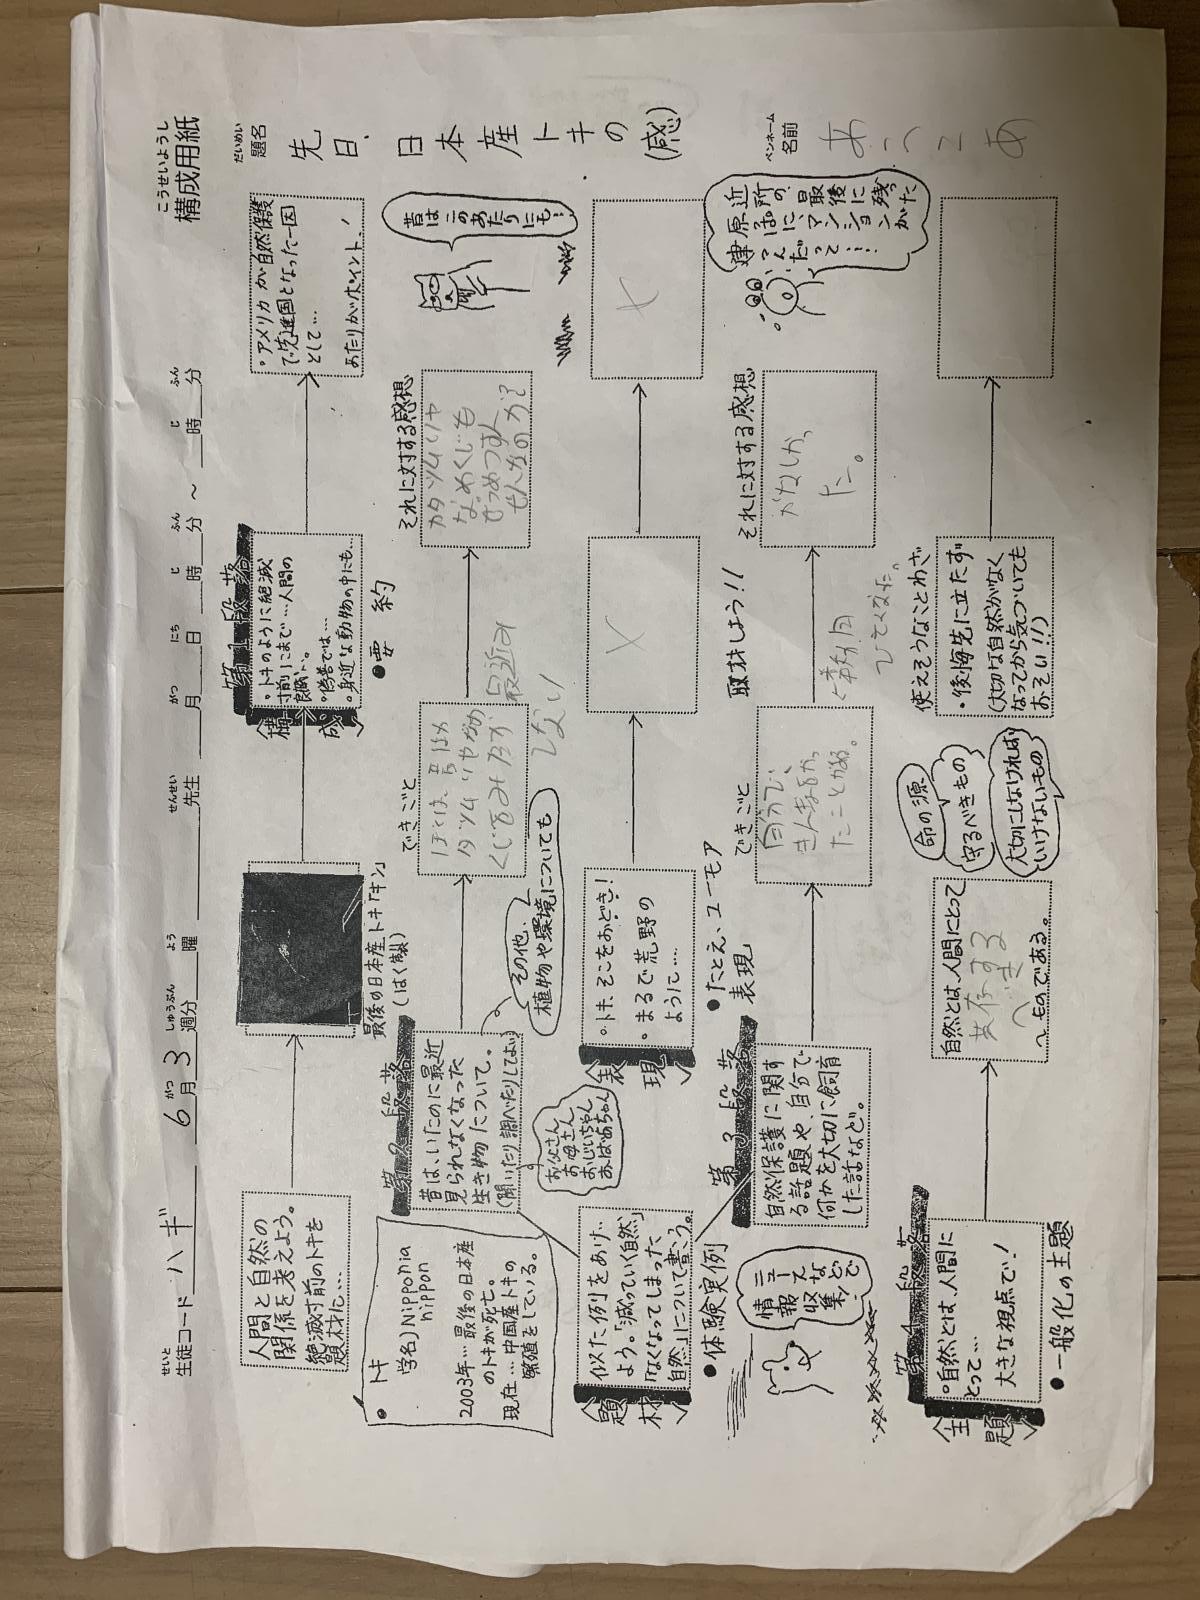 こうせいようし
構成用紙
せいと
生徒コード ハギ
がつ しゅうぶん よう
6月3週分 曜
せんせい
先生
がつ にち じ ふん じ ふん
月 日 時 分 ～ 時 分
だいめい
題名
先日、日本産トキの(感)
人間と自然の
関係を考えよう。
絶滅寸前のトキを
題材に…
最後の日本産トキ「キン」
(はく製)
第1段落
構成
・トキのように絶滅
寸前にまで…人間の
良識に。
・偽善では…
・身近な動物の中にも…
・アメリカが自然保護
で先進国となった一因
として…
あたりがポイント!
●要約
昔はこのあたりにも…
● トキ
学名)Nipponia
nippon
2003年…最後の日本産
のトキが死亡。
現在…中国産トキの
繁殖をしている。
第2段落
昔は、いたのに最近
見られなくなった
生き物について。
(聞いたり調べたりしてよい)
お父さん
お母さん
おじいちゃん
おばあちゃん
その他、
植物や環境についても
できごと
ぼくは、昔はカ
タツムリやなめ
くじをみたが
最近み
ない
それに対する感想
カタツムリや
なめくじも
ぜつめつすん
ぜんなのか?
題材
似た例をあげ
よう。「減っていく自然」
「なくなってしまった
自然」について書こう。
●体験実例
表現
・トキ、そこをおどき!
・まるで荒野の
ように…
●たとえ、ユーモア
表現
×
×
ペンネーム
名前
あつこあ
近所の
原っぱに、
最後に残った
マンションが
建つんだって…
情報収集
ニュースなどで
第3段落
自然保護に関す
る話題や、自分で
何かを大切に飼育
した話など。
できごと
自分で、
きんぎょをかっ
たことがある。
取材しよう!!
それに対する感想
かなしかっ
た。
第4段落
主題
・自然とは、人間に
とって…
大きな視点で!
●一般化の主題
自然とは、人間にとって
共存する
べき
～ものである。
命の源
守るべきもの
大切にしなければ
いけないもの
使えそうなことわざ
・後悔先に立たず
(大切な自然がなく
なってから気づいても
おそい!!)